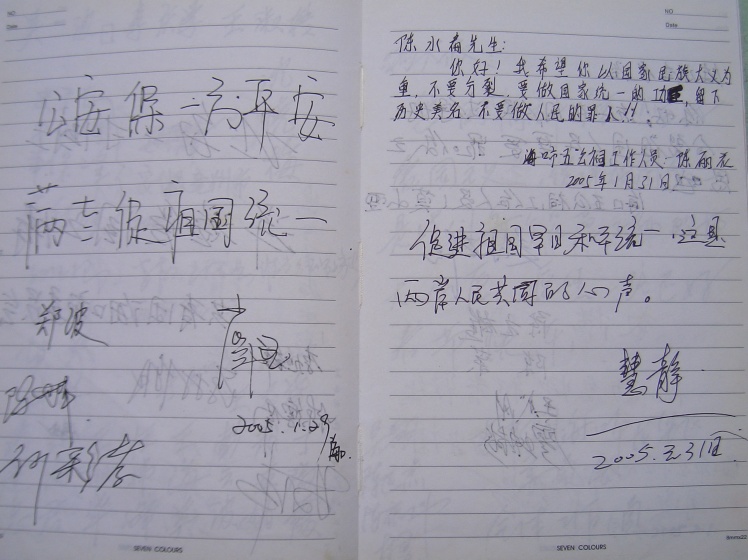 NO
Date
公安保一方平安
满 促祖国统一
郑波
2005.1.29
SEVEN COLOURS
NO
Date
陈水扁先生:
你好!我希望你以国家民族大义为
重,不要分裂,要做国家统一的功臣,留下
历史美名,不要做人民的罪人!!
海口市五公祠工作人员-陈丽
2005年1月31日
促进祖国早日和平统一,这是
两岸人民共同的心声。
慧静
2005.元.31日
SEVEN COLOURS